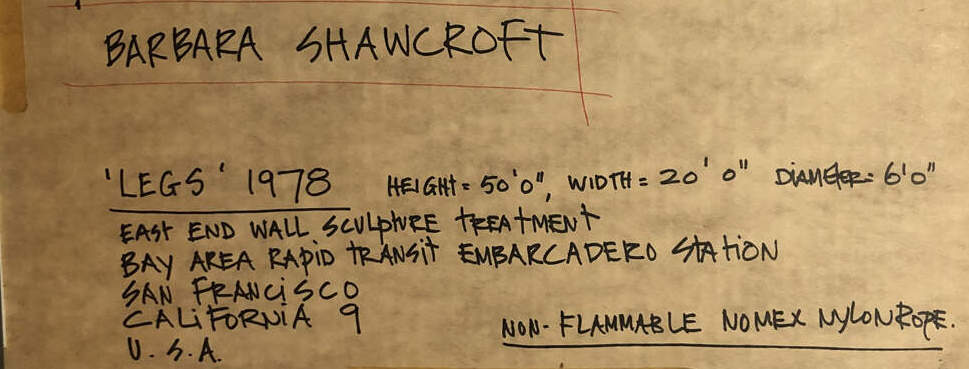 BARBARA SHAWCROFT
'LEGS' 1978 HEIGHT = 50'0", WIDTH = 20'0" DIAMETER: 6'0"
EAST END WALL SCULPTURE TREATMENT
BAY AREA RAPID TRANSIT EMBARCADERO STATION
SAN FRANCISCO
CALIFORNIA 9
U.S.A.
NON-FLAMMABLE NOMEX NYLON ROPE.